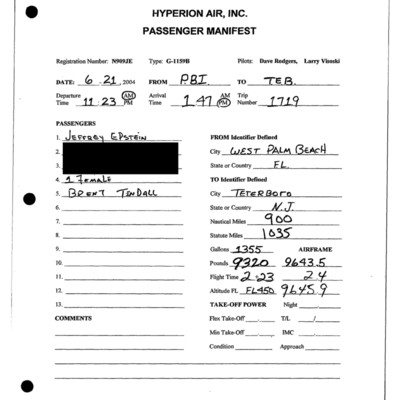 HYPERION AIR, INC.
PASSENGER MANIFEST
Registration Number: N909JE Type: G-1159B Pilots: Dave Rodgers, Larry Visoski
DATE: 6 . 21 , 2004 FROM PBI TO TEB
Departure Time 11 23 AM PM Arrival Time 1 47 AM PM Trip Number 1719
PASSENGERS
1. JEFFREY EPSTEIN FROM Identifier Defined
2. City WEST PALM BEACH
3. State or Country FL.
4. 1 FEMALE TO Identifier Defined
5. BRENT TINDALL City TETERBORO
6. State or Country N.J.
7. Nautical Miles 900
8. Statute Miles 1035
9. Gallons 1355 AIRFRAME
10. Pounds 9320 9643.5
11. Flight Time 2+23 2.4
12. Altitude FL FL450 9645.9
13. TAKE-OFF POWER Night
COMMENTS Flex Take-Off T/L /
Min Take-Off IMC
Condition Approach